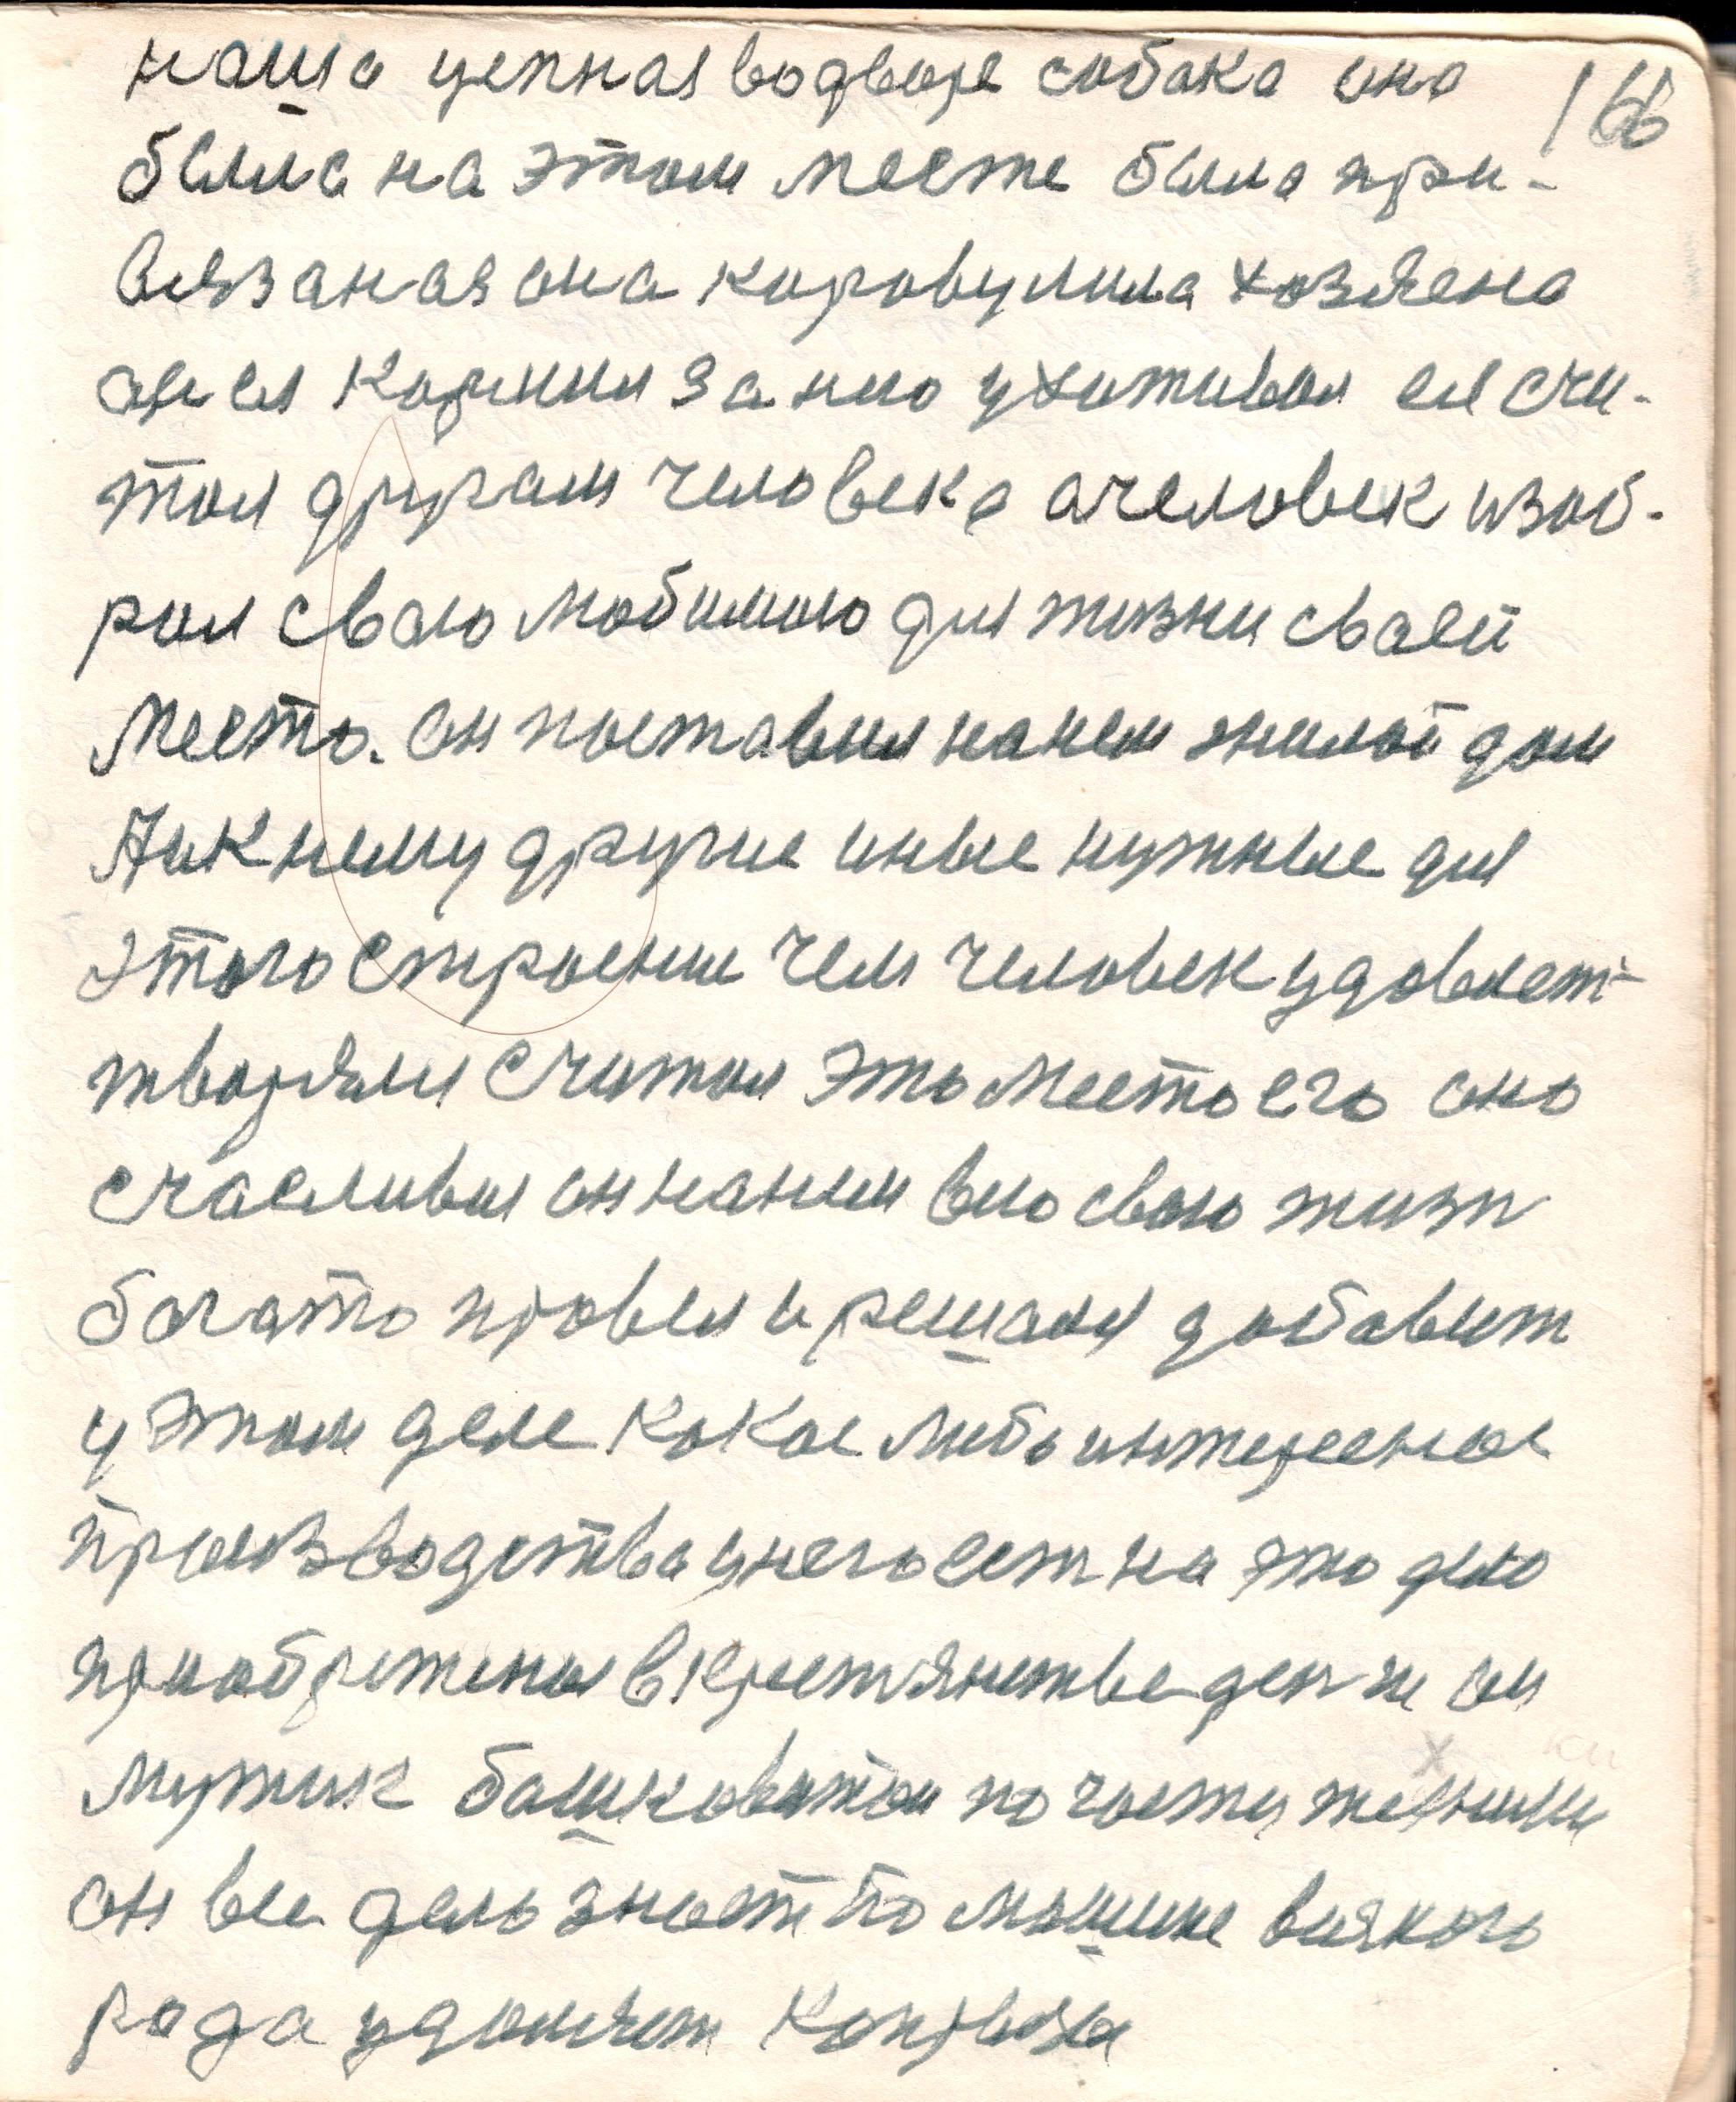 наша цепная водворе собака она 166
была на этом месте была при-
вязаная она коровулила хозяена
он ея кормил за нею ухаживал ея счи-
тал другам человека ачеловек изоб-
рал сваю любимаю для жизни сваей
место. он поставил нанем жилой дом
Аикнему другие иные нужные для
этого строении чем человек удовлет-
творялся считал это место его оно
счасливыл оннаним всю сваю жизн
богато провел ирешался добавит
у этом деле какое либо интересное
производства унего ест на это дело
приобретеныя вкрестянстве денги он
мужик башковитои по части техники
он все дело знает по машине всякого
рода удомлет